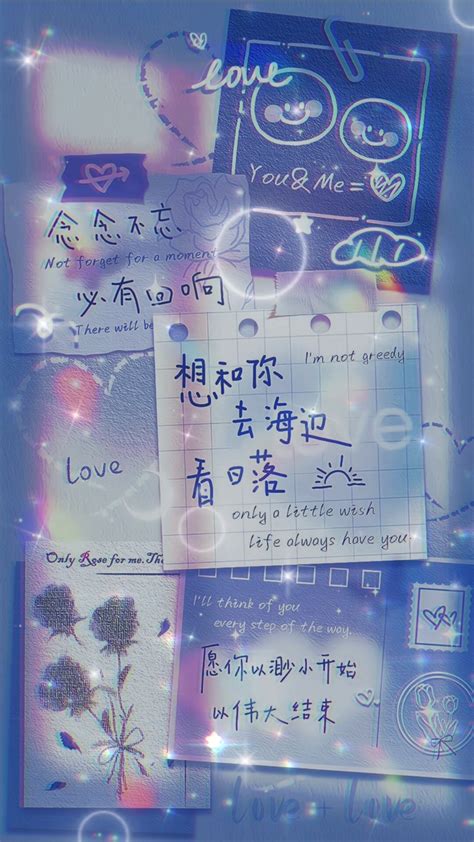 love
You & Me =
念念不忘
Not forget for a moment
必有回响
There will be
想和你
I'm not greedy
去海边
Love
看日落
Love
only a little wish
life always have you.
Only Rose for me.The
I'll think of you
every step of the way.
愿你以渺小开始
以伟大结束
love + Love